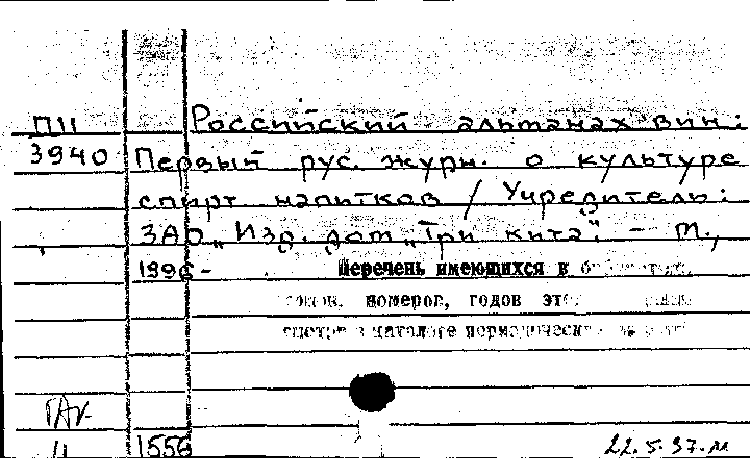 ПИ Российский альманах вин:
3940 Первый рус. журн. о культуре
спирт напитков / Учредитель:
ЗАО „Изд. дом „Три кита". - М.,
1996-
Перечень имеющихся в
номеров, годов
смотри в каталоге периодических
1556 22.5.97.